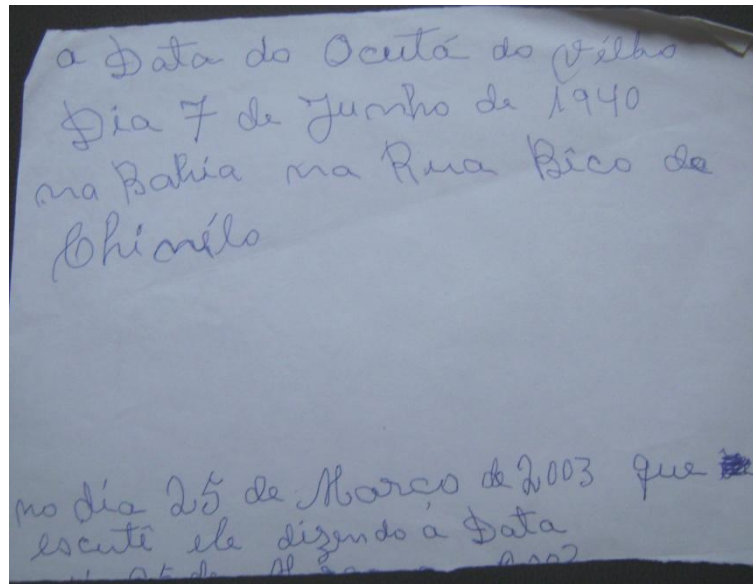 a Data do Ocutá do Vélho
Dia 7 de Junho de 1940
na Bahia na Rua Bico de
Chinélo
no dia 25 de Março de 2003 que
escutê ele dizendo a Data